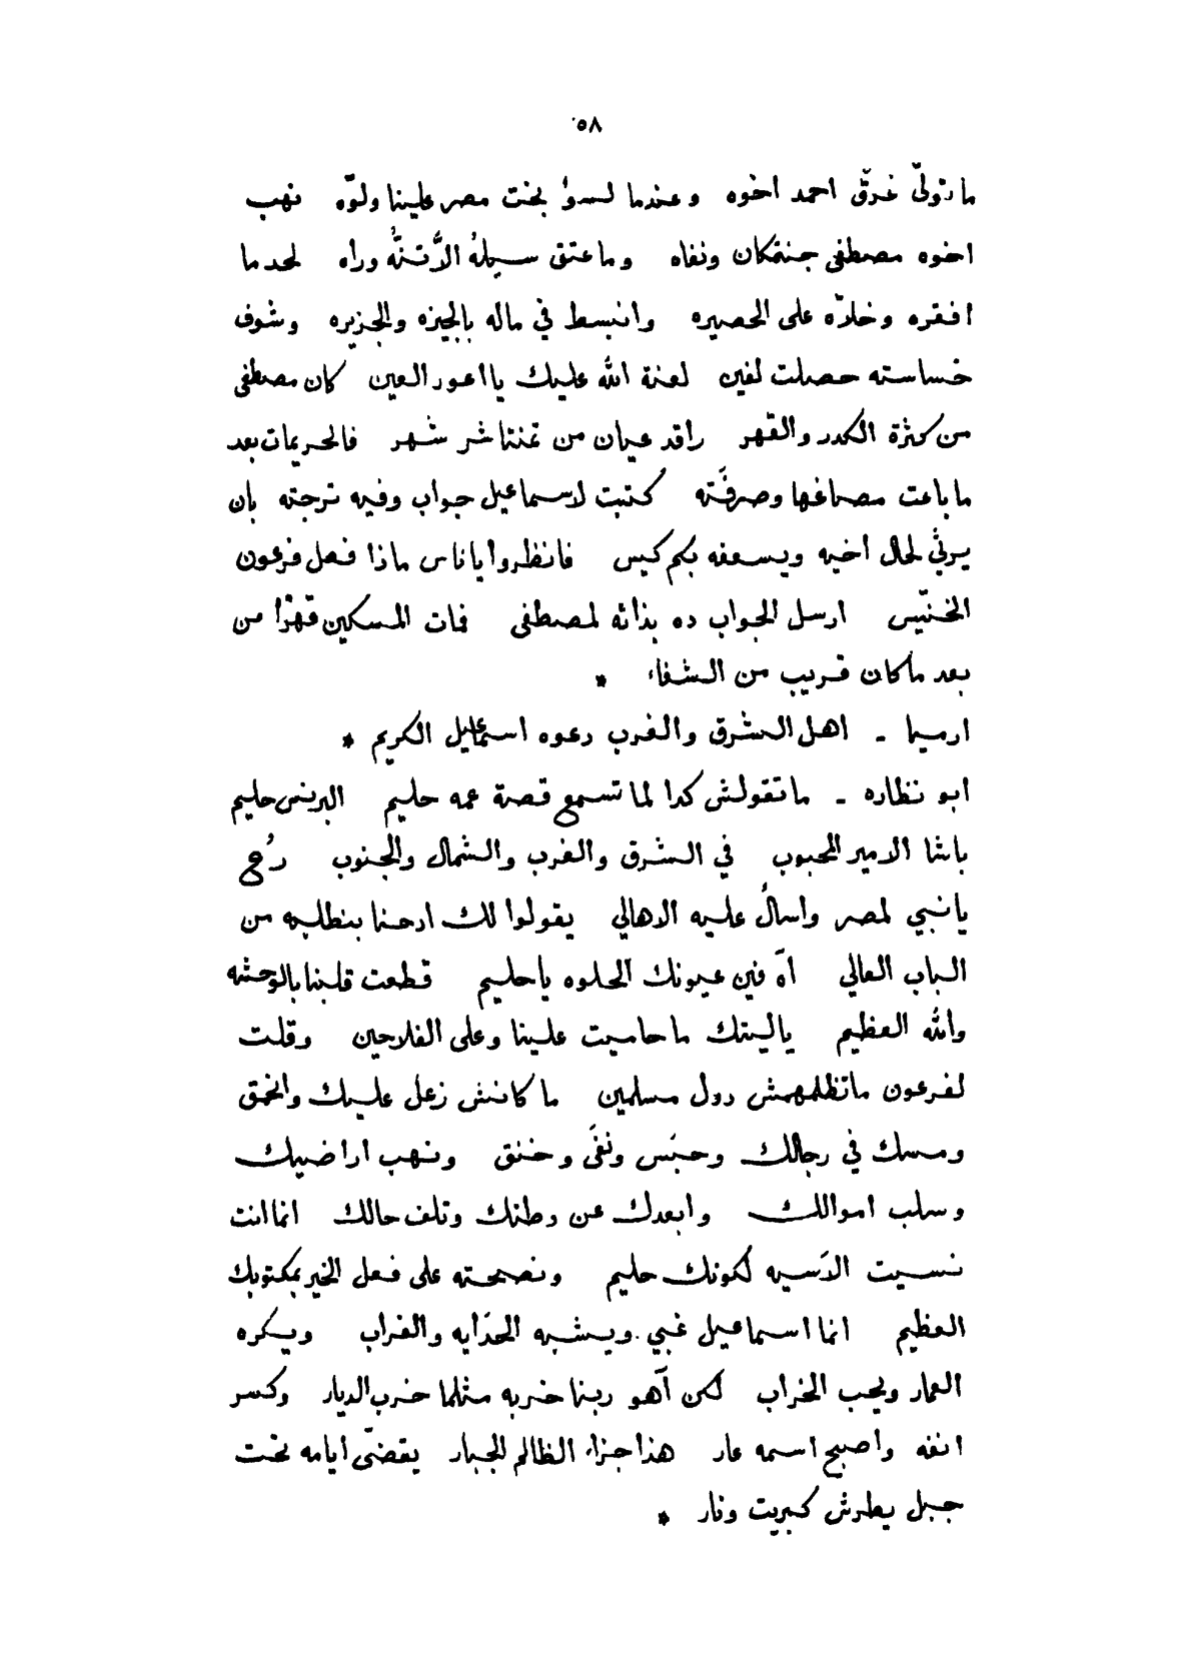 ٥٨
ما تولّى غرّق احمد اخوه وعندما لسوء بخت مصر علينا ولوّه نهب
اخوه مصطفى جنتمكان ونفاه وما عتق سبيلهُ الَّا تنُّه وراه لحد ما
افقره وخلاّه على الحصيره وانبسط في ماله بالجيزه والجزيره وشوف
خساسته حصلت لفين لعنة الله عليك يا اعور العين كان مصطفى
من كثرة الكدر والقهر راقد عيان من تمنتاشر شهر فالحريمات بعد
ما باعت مصاغها وصرفَته كتبت لاسماعيل جواب وفيه ترجته بان
يرثي لحال اخيه ويسعفه بكم كيس فانظروا يا ناس ماذا فعل فرعون
الخنّيس ارسل الجواب ده بذاته لمصطفى فمات المسكين قهرًا من
بعد ما كان قريب من الشفاء *
ارميا - اهل الشرق والغرب دعوه اسماعيل الكريم *
ابو نظاره - ما تقولش كدا لما تسمع قصة عمه حليم البرنس حليم
باشا الامير المحبوب في الشرق والغرب والشمال والجنوب رُح
يا نبي لمصر واسألُ عليه الاهالي يقولوا لك ادحنا بنطلبه من
الباب العالي آه فين عيونك الحلوه يا حليم قطعت قلبنا بالوحشه
والله العظيم ياليتك ما حاميت علينا وعلى الفلاحين وقلت
لفرعون ماتظلمهمش دول مسلمين ما كانش زعل عليك وانحمق
ومسك في رجالك وحبَس ونفَى وخنق ونهب اراضيك
وسلب اموالك وابعدك عن وطنك وتلف حالك انما انت
نسيت الاَسيه لكونك حليم ونصحته على فعل الخير بمكتوبك
العظيم انما اسماعيل غبي ويشبه الحدَايه والغراب ويكره
العمار ويحب الخراب لكن آهو ربنا خربه مثلما خرب الديار وكسر
انفه واصبح اسمه عار هذا جزاء الظالم الجبار يقضّي ايامه تحت
جبل يطرش كبريت ونار *